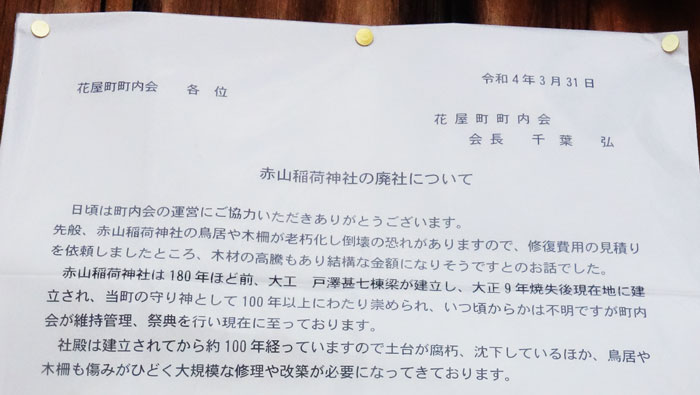 令和4年3月31日
花屋町町内会 各位
花屋町町内会
会長 千葉 弘
赤山稲荷神社の廃社について
日頃は町内会の運営にご協力いただきありがとうございます。
先般、赤山稲荷神社の鳥居や木柵が老朽化し倒壊の恐れがありますので、修復費用の見積り
を依頼しましたところ、木材の高騰もあり結構な金額になりそうですとのお話でした。
赤山稲荷神社は180年ほど前、大工 戸澤甚七棟梁が建立し、大正9年焼失後現在地に建
立され、当町の守り神として100年以上にわたり崇められ、いつ頃からかは不明ですが町内
会が維持管理、祭典を行い現在に至っております。
社殿は建立されてから約100年経っていますので土台が腐朽、沈下しているほか、鳥居や
木柵も傷みがひどく大規模な修理や改築が必要になってきております。